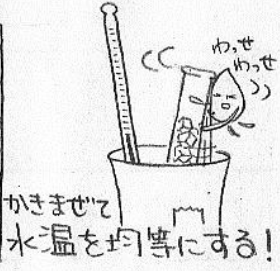 わっせ
わっせ
かきまぜて
水温を均等にする!